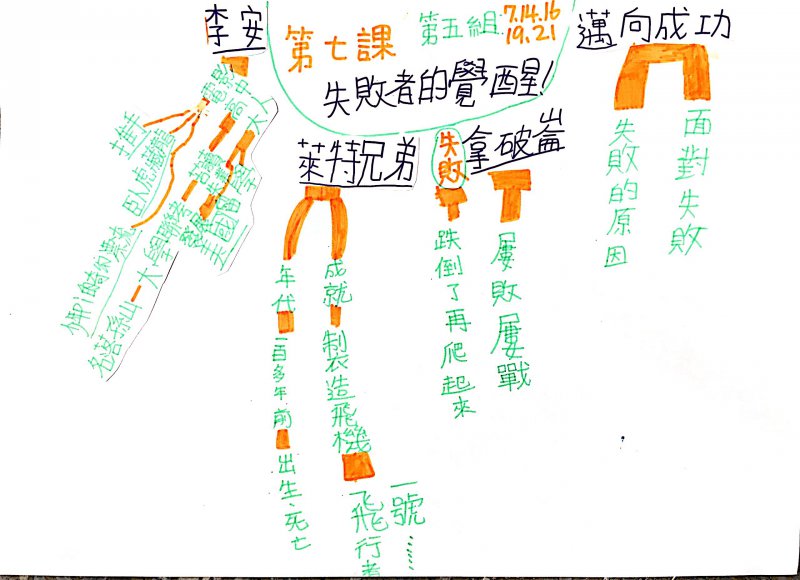 第七課
第五組
7.14.16
19.21
失敗者的覺醒！
李安
電影中人
推手
臥虎藏龍
少年Pi的奇幻漂流
高
大學聯考
名落孫山
萊特兄弟
年代
一百多年前
出生、死亡
成就
製造飛機
飛行者
一號……
失敗
跌倒了再爬起來
拿破崙
屢敗屢戰
邁向成功
失敗的原因
面對失敗